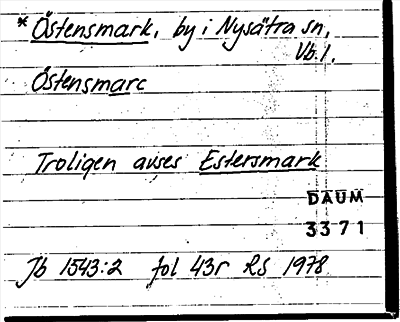 * Östensmark, by i Nysätra sn,
Vb. l.
Östensmarc
Troligen avses Estersmark
DAUM
3371
Jb 1543:2 fol 43r RS 1978